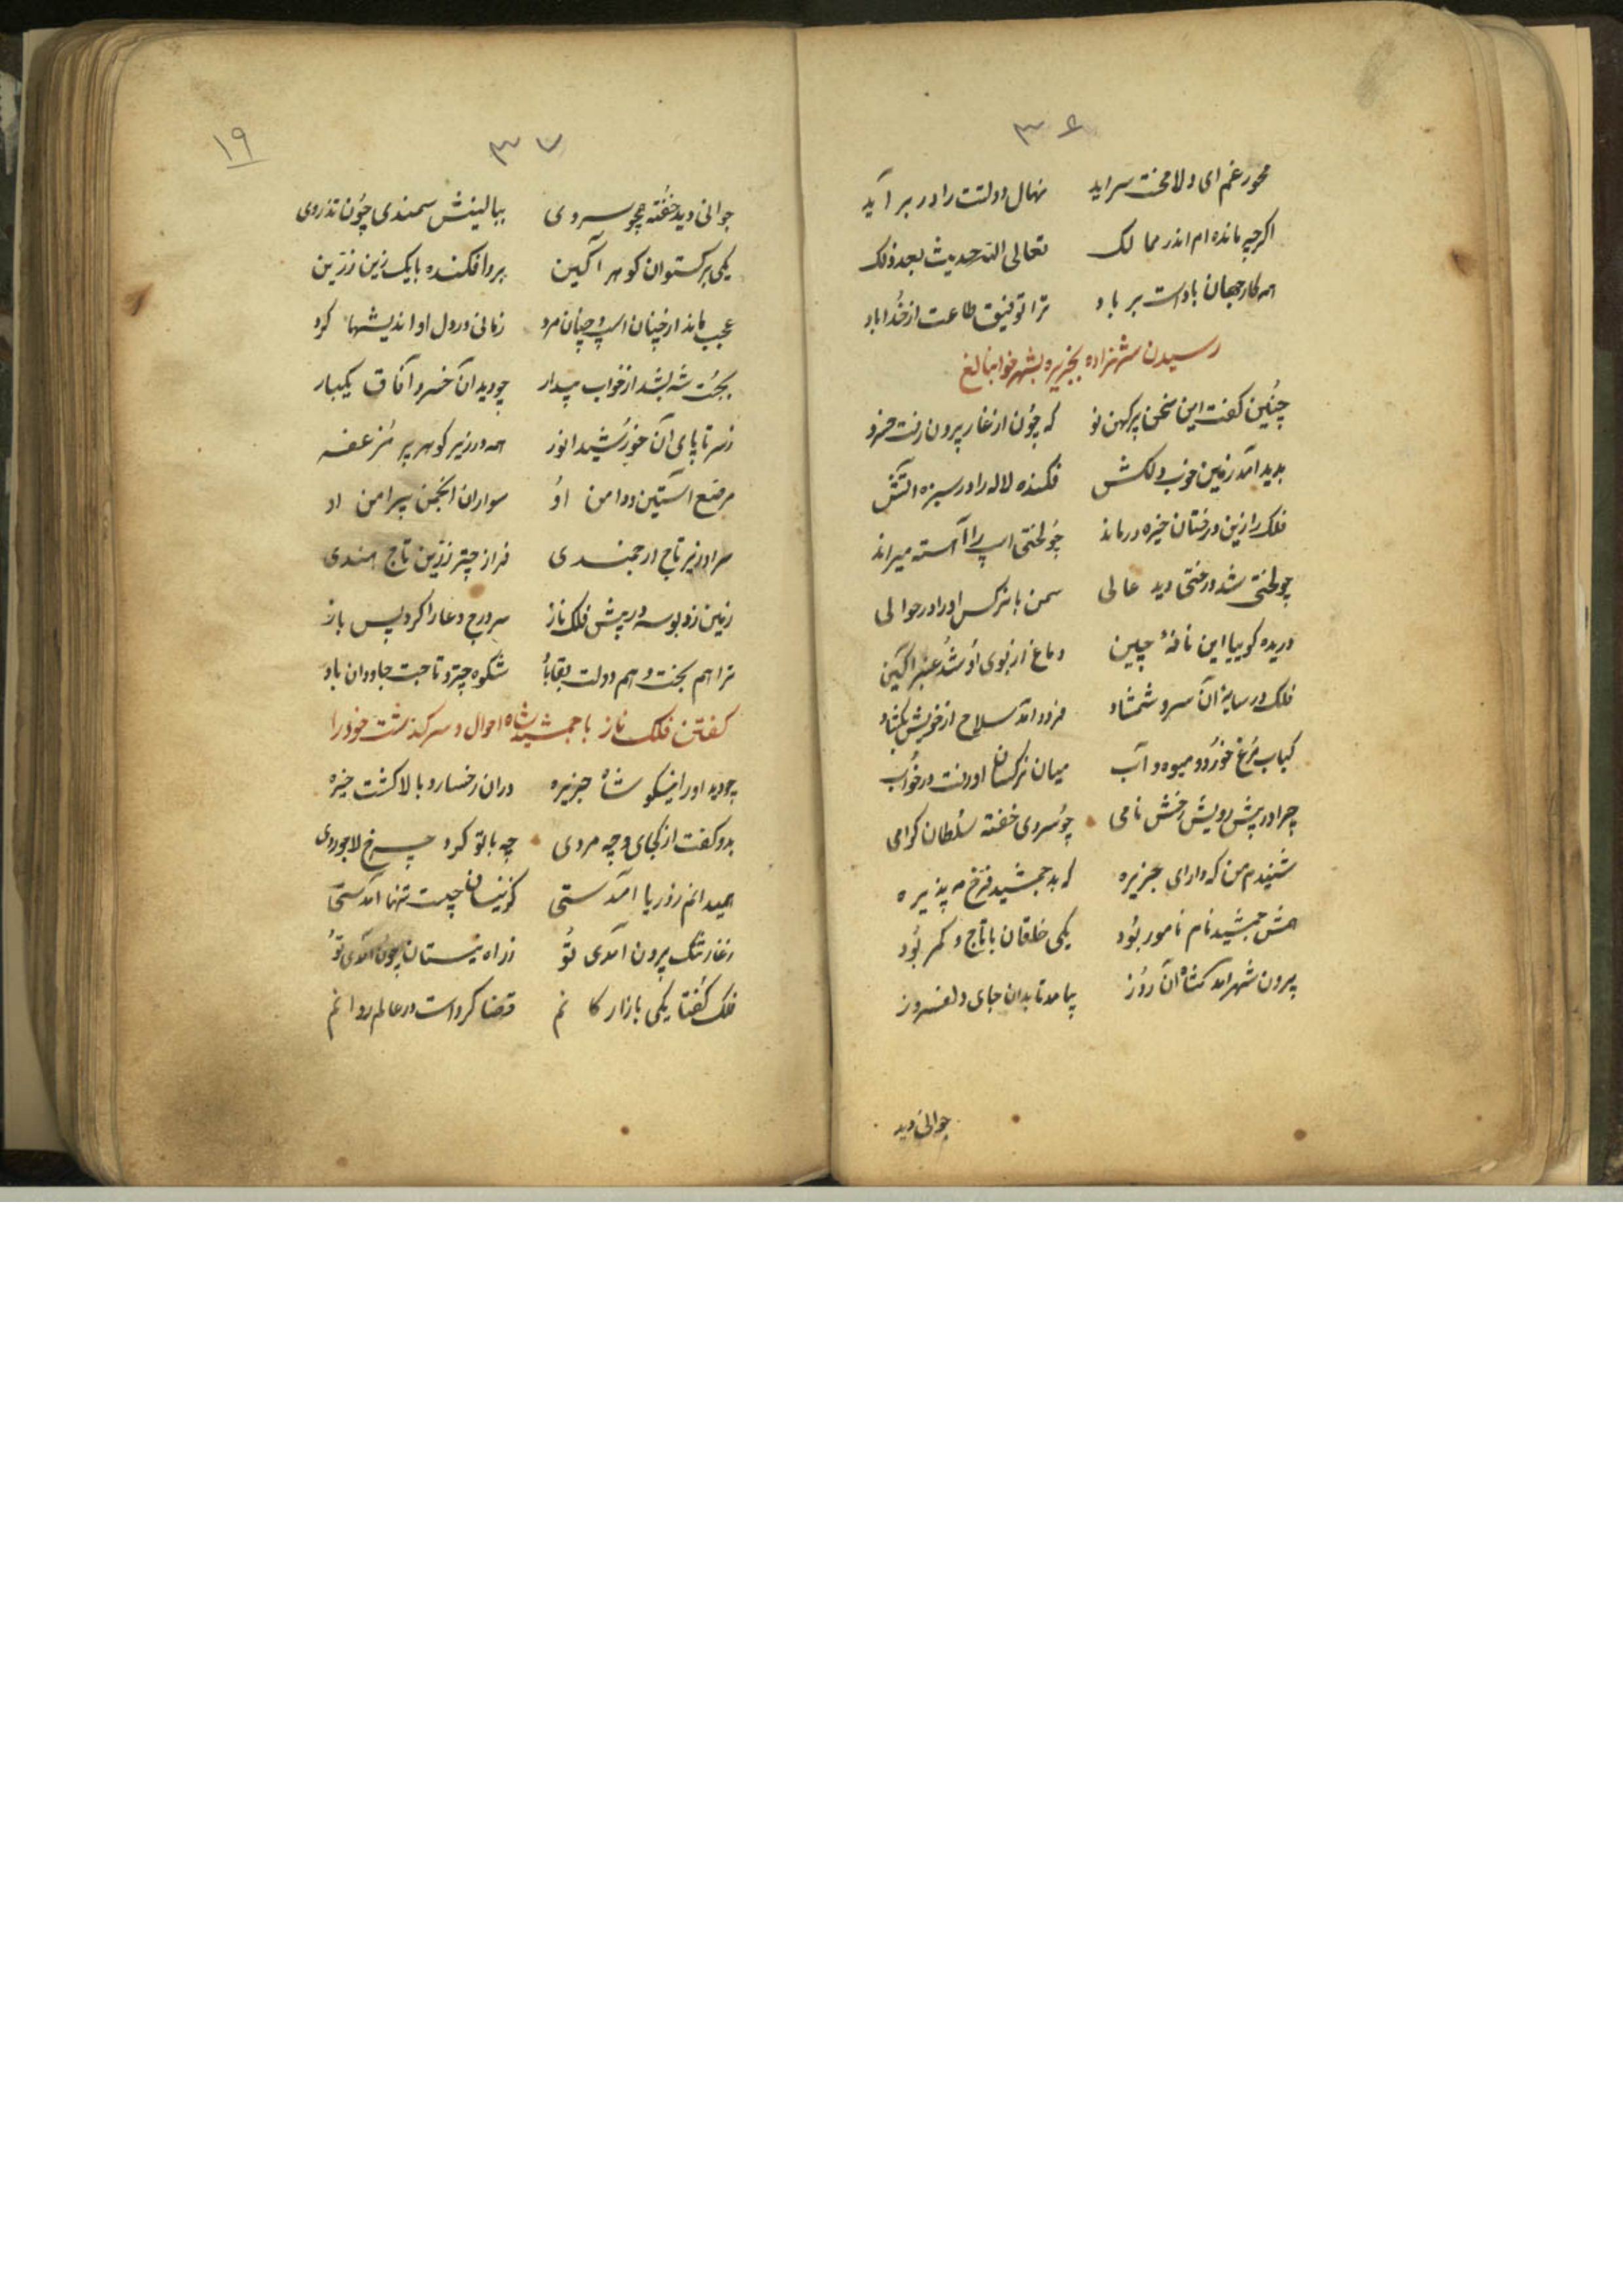 ۳۶
مخور غم ای دلا محنت سراید نهال دولتت را در بر آید
اکرچه مانده ام اندر ممالک تعالی الله حدیث بعد ذلک
همه کار جهان بادست بر باد ترا توفیق طاعت از خدا باد
رسیدن شهزاده بجزیره بشهر
چنین کفت این سخن پیر کهن نو که چون از غار بیرون رفت خسرو
بدید آمد زمین خوب و دلکش فکنده لاله را در سبزه آتش
فلک را زین درختان خیره درماند چو لختی اسپ را آهسته میراند
چو لختی شد درختی دید عالی سمن با نرکس اورا در حوالی
دریده کوییا این نافهٔ چین دماغ از بوی او شد عنبر اکین
فلک در سایهٔ آن سرو شمشاد فرود آمد سلاح از خویش بکشاد
کباب مرغ خورد و میوه و آب میان نرکسان او رفت در خواب
چرا در پیش رویش رخش نامی چو سروی خفته سلطان کرامی
شنیدم من که دارای جزیره که بد جمشید فرخ مه پذیره
همش جمشید نام نامور بود یکی خلقان با تاج و کمر بود
بیرون شهر آمد شاه آن روز بیامد تا بدان جای دلفروز
جوانی دید
۱۹
۳۷
جوانی دید خفته همچو سروی ببالینش سمندی چون تذروی
یکی برکستوان کوهر آکین برو افکنده با یک زین زرین
عجب ماند از چنان اسپ و چنان مرد زمانی در دل او اندیشها کرد
بجست شه بشد از خواب بیدار چو دید آن خسرو آفاق یکبار
ز سر تا پای آن خورشید انور همه در زیر کوهر پر مزعفر
مرصع آستین و دامن او سواران انجمن پیرامن او
سر او زیر تاج ارجمندی فراز چتر زرین تاج هندی
زمین زد بوسه در پیش فلک ناز سر درج دعا را کرد پس باز
ترا هم بخت و هم دولت بقا باد شکوه چتر و تاجت جاودان باد
کفتن فلک ناز با جمشید شاه احوال و سرکذشت خود را
چو دید اورا نیکو شاه جزیره در آن رخسار و بالا کشت خیره
بدو کفت از کجای و چه مردی چه با تو کرد چرخ لاجوردی
همیدانم ز دریا آمدستی کزینسان چیست تنها آمدستی
ز غار تنک بیرون آمدی تو ز راه نیستان چون آمدی تو
فلک کفتا یکی بازارکانم قضا کردست در عالم روانم